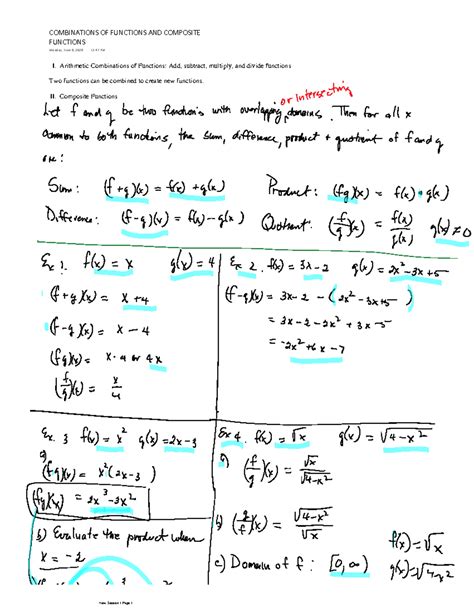 COMBINATIONS OF FUNCTIONS AND COMPOSITE
FUNCTIONS
I. Arithmetic Combinations of Functions: Add, subtract, multiply, and divide functions
Two functions can be combined to create new functions.
II. Composite Functions
or intersecting
Let f and g be two functions with overlapping domains. Then for all x
common to both functions, the sum, difference, product + quotient of f and g
are:
Sum: (f+g)(x) = f(x) + g(x)
Product: (fg)(x) = f(x) • g(x)
Difference: (f-g)(x) = f(x) - g(x)
Quotient: (f/g)(x) = f(x)/g(x) g(x) ≠ 0
Ex 1. f(x) = x g(x) = 4
(f+g)(x) = x+4
(f-g)(x) = x - 4
(fg)(x) = x·4 or 4x
(f/g)(x) = x/4
Ex 2. f(x) = 3x-2 g(x) = 2x²-3x+5
(f-g)(x) = 3x-2 - (2x²-3x+5)
= 3x-2-2x²+3x-5
= -2x²+6x-7
Ex. 3 f(x) = x² g(x) = 2x-3
a)
(fg)(x) = x²(2x-3)
(fg)(x) = 2x³-3x²
b) Evaluate the product when
x = -2
Ex 4. f(x) = √x g(x) = √4-x²
a) (f/g)(x) = √x/√4-x²
b) (g/f)(x) = √4-x²/√x
c) Domain of f: [0, ∞)
f(x) = √x
g(x) = √4-x²
New Section 1 Page 1